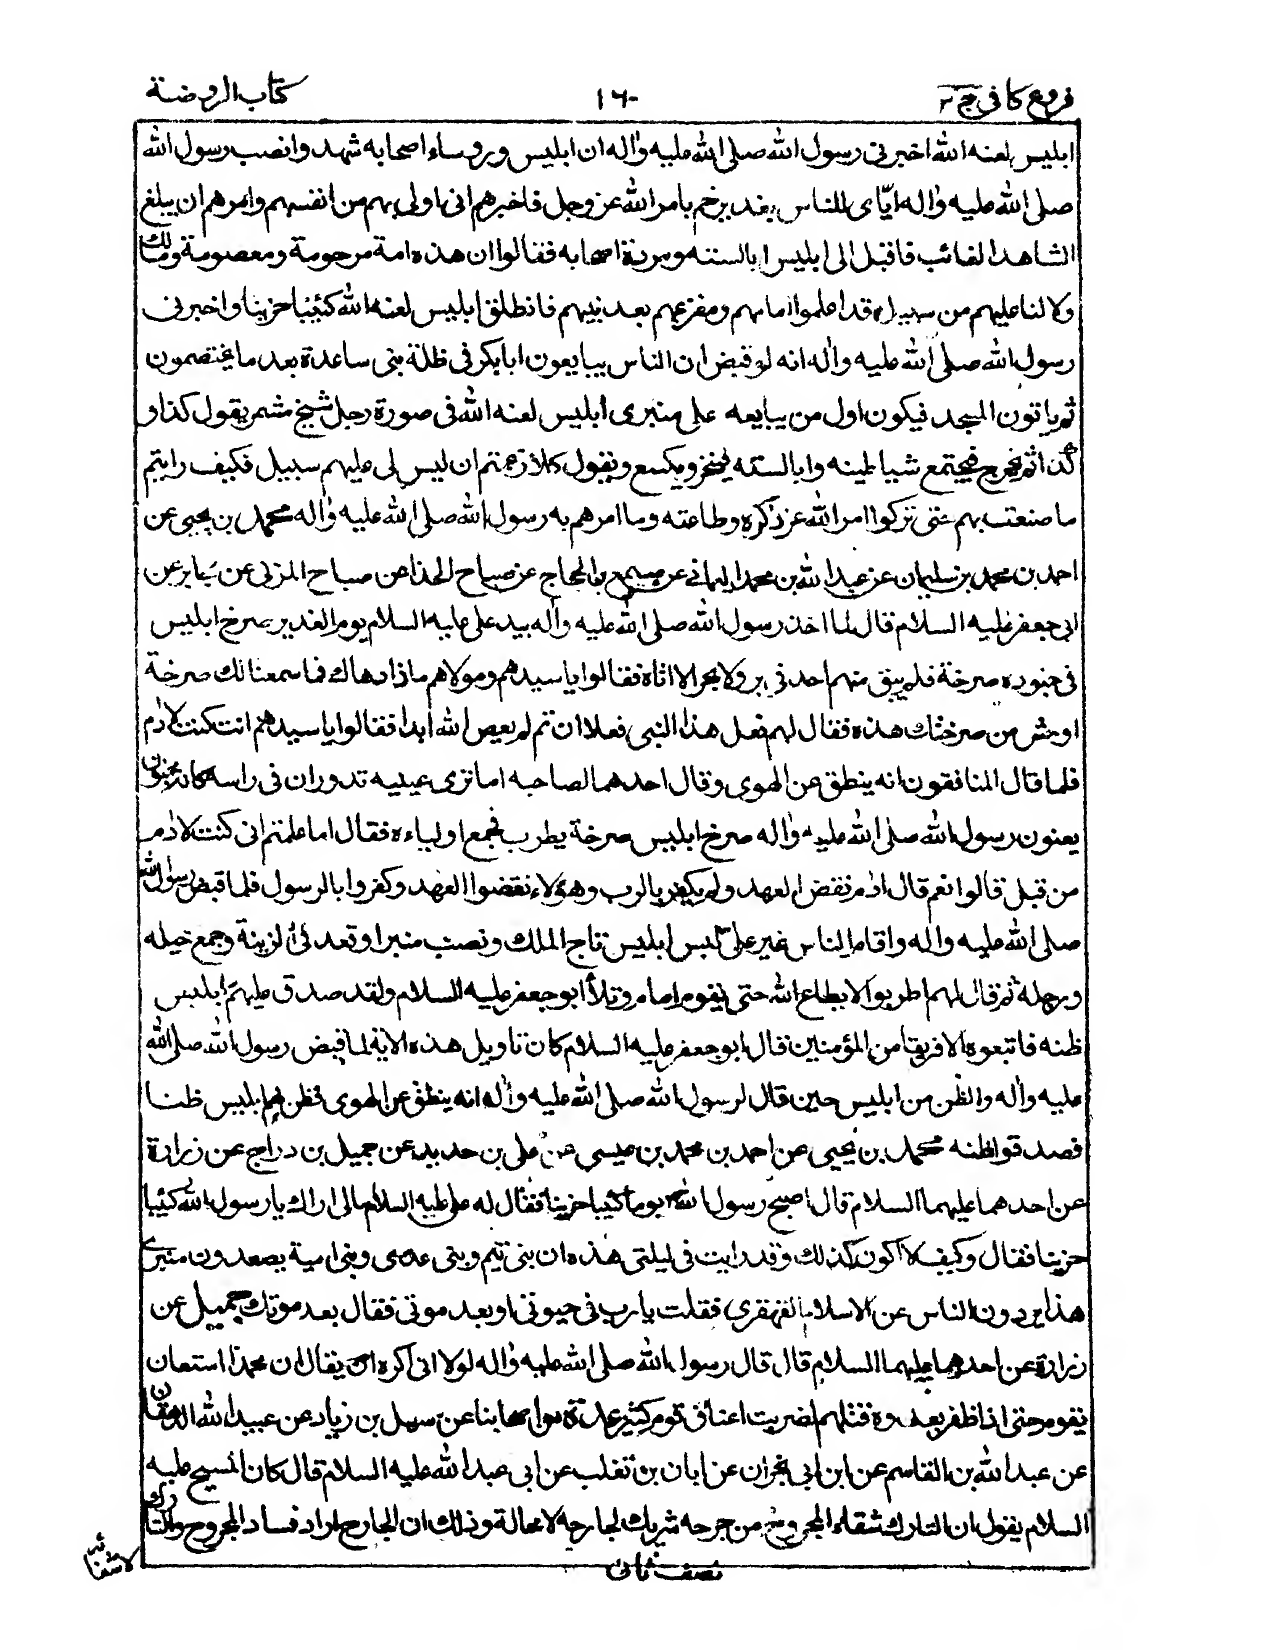 فروع كافى ج ٢
١٦٠
كتاب الروضة
ابليس لعنه الله اخبرنى رسول الله صلى الله عليه واله ان ابليس ورؤساء اصحابه شهدوا نصب رسول الله
صلى الله عليه واله اياى للناس بغدير خم بامر الله عز وجل فاخبرهم انى اولى بهم من انفسهم وامرهم ان يبلغ
الشاهد الغائب فاقبل الى ابليس ابالسته ومردة اصحابه فقالوا ان هذه امة مرحومة ومعصومة ومالك
ولا لنا عليهم من سبيل قد اعلموا امامهم ومفزعهم بعد نبيهم فانطلق ابليس لعنه الله كئيبا حزينا واخبرنى
رسول الله صلى الله عليه واله انه لو قبض ان الناس يبايعون ابابكر فى ظلة بنى ساعدة بعد ما يختصمون
ثم ياتون المسجد فيكون اول من يبايعه على منبرى ابليس لعنه الله فى صورة رجل شيخ مشمر يقول كذا و
كذا ثم يخرج فيجتمع شياطينه وابالسته فينخر ويكسع ويقول كلا زعمتم ان ليس لى عليهم سبيل فكيف رايتم
ما صنعت بهم حتى تركوا امر الله عز ذكره وطاعته وما امرهم به رسول الله صلى الله عليه واله محمد بن يحيى عن
احمد بن محمد بن سليمان عن عبد الله بن محمد اليمانى عن مسمع بن الحجاج عن صباح الحذا عن صباح المزنى عن جابر عن
ابى جعفر عليه السلام قال لما اخذ رسول الله صلى الله عليه وآله بيد على عليه السلام يوم الغدير صرخ ابليس
فى جنوده صرخة فلم يبق منهم احد فى بر ولا بحر الا اتاه فقالوا يا سيدهم ومولاهم ماذا دهاك فما سمعنا لك صرخة
اوحش من صرختك هذه فقال لهم فعل هذا النبى فعلا ان تم لم يعص الله ابدا فقالوا يا سيدهم انت كنت لادم
فلما قال المنافقون انه ينطق عن الهوى وقال احدهما لصاحبه اما ترى عينيه تدوران فى راسه كانه مجنون
يعنون رسول الله صلى الله عليه واله صرخ ابليس صرخة يطرب فجمع اولياءه فقال اما علمتم انى كنت لادم
من قبل قالوا نعم قال ادم نقض العهد ولم يكفر بالرب وهؤلاء نقضوا العهد وكفروا بالرسول فلما قبض رسول الله
صلى الله عليه واله واقام الناس غير على لبس ابليس تاج الملك ونصب منبرا وقعد فى الزينة وجمع خيله
ورجله ثم قال لهم اطربوا لا يطاع الله حتى يقوم امام وتلا ابو جعفر عليه السلام ولقد صدق عليهم ابليس
ظنه فاتبعوه الا فريقا من المؤمنين قال ابو جعفر عليه السلام كان تاويل هذه الاية لما قبض رسول الله صلى الله
عليه وآله والظن من ابليس حين قال لرسول الله صلى الله عليه وآله انه ينطق عن الهوى فظن بهم ابليس ظنا
فصدقوا ظنه محمد بن يحيى عن احمد بن محمد بن عيسى عن على بن حديد عن جميل بن دراج عن زرارة
عن احدهما عليهما السلام قال اصبح رسول الله يوما كئيبا حزينا فقال له على عليه السلام مالى اراك يا رسول الله كئيبا
حزينا فقال وكيف لا اكون كذلك وقد رايت فى ليلتى هذه ان بنى تيم وبنى عدى وبنى امية يصعدون منبرى
هذا يردون الناس عن الاسلام القهقرى فقلت يا رب فى حيوتى او بعد موتى فقال بعد موتك جميل عن
زرارة عن احدهما عليهما السلام قال قال رسول الله صلى الله عليه واله لولا انى اكره ان يقال ان محمدا استعان
بقوم حتى اذا ظفر بعدوه قتلهم لضربت اعناق قوم كثير عدة من اصحابنا عن سهل بن زياد عن عبيد الله الدهقان
عن عبد الله بن القاسم عن ابن ابى نجران عن ابان بن تغلب عن ابى عبد الله عليه السلام قال كان المسيح عليه
السلام يقول ان التارك شفاء المجروح من جرحه شريك لجارحه لا محالة وذلك ان الجارح اراد فساد المجروح والتارك
لاشفائه
نصف ثانى